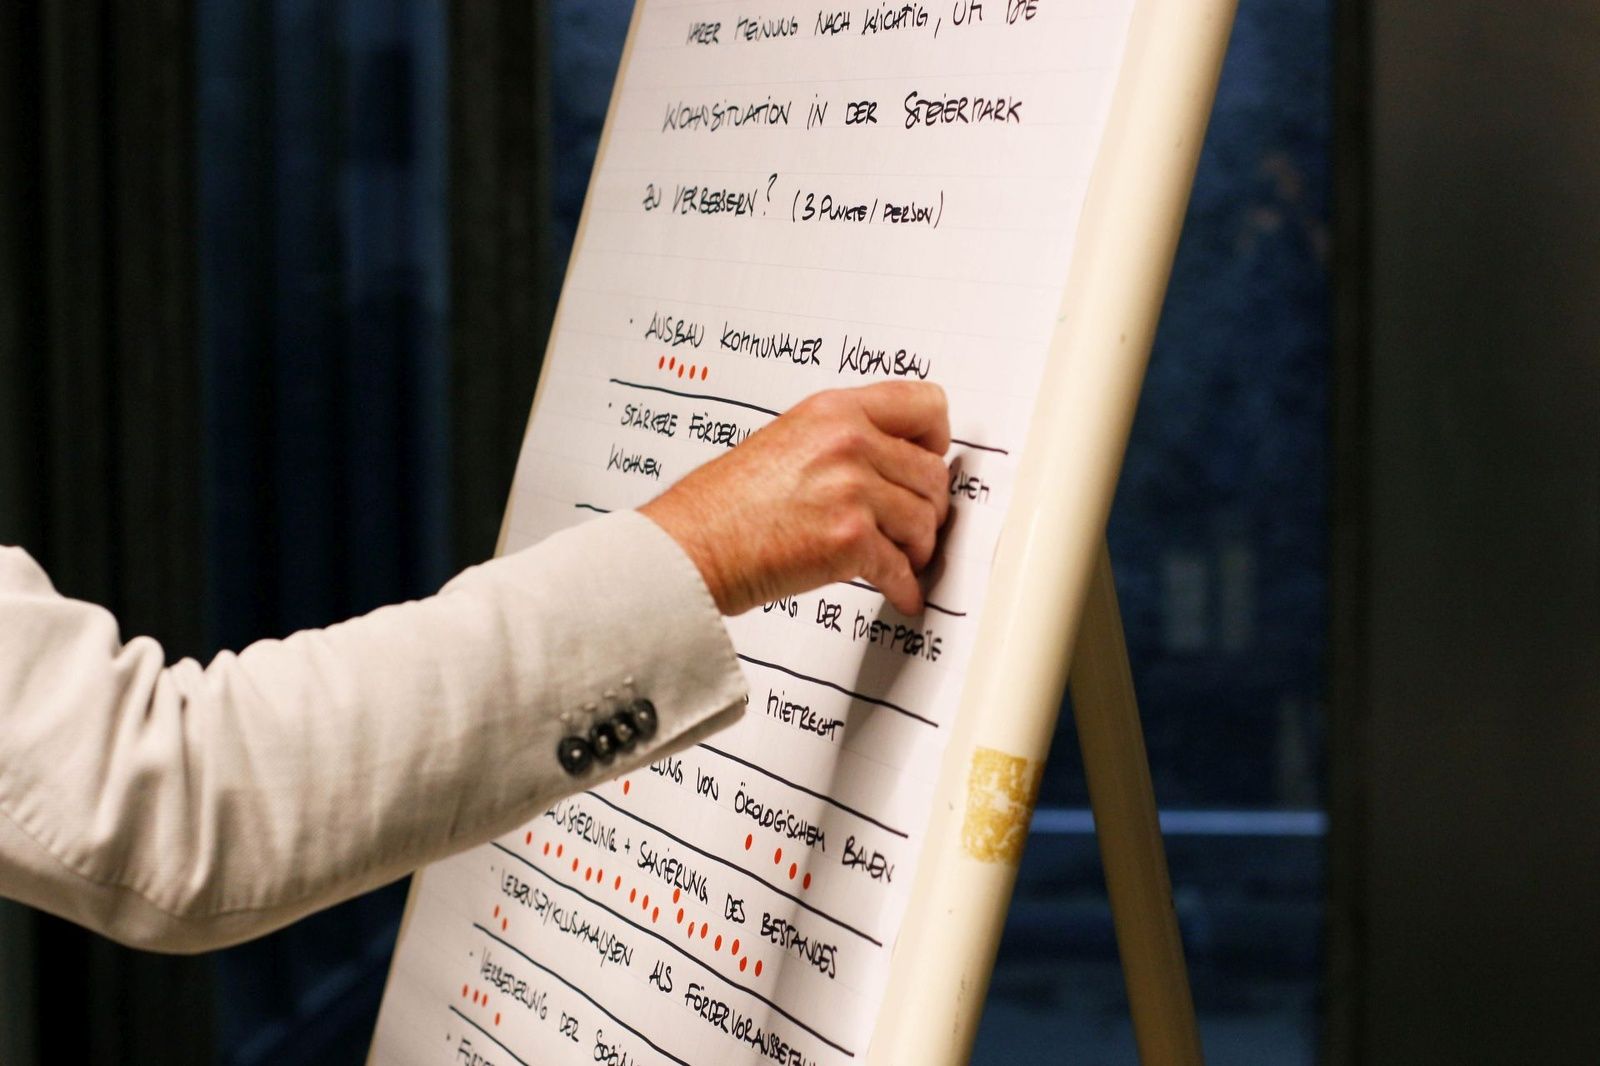 IHRER MEINUNG NACH WICHTIG, UM DIE
WOHNSITUATION IN DER STEIERMARK
ZU VERBESSERN? (3 PUNKTE / PERSON)
· AUSBAU KOMMUNALER WOHNBAU
· STÄRKERE FÖRDERU
WOHNEN
CHEM
UNG DER MIETPREISE
MIETRECHT
ZUNG VON ÖKOLOGISCHEM BAUEN
ALISIERUNG + SANIERUNG DES BESTANDES
· LEBENSZYKLUSANALYSEN ALS FÖRDERVORAUSSETZU
· VERBESSERUNG DER SOZIAL
· FÖRDE